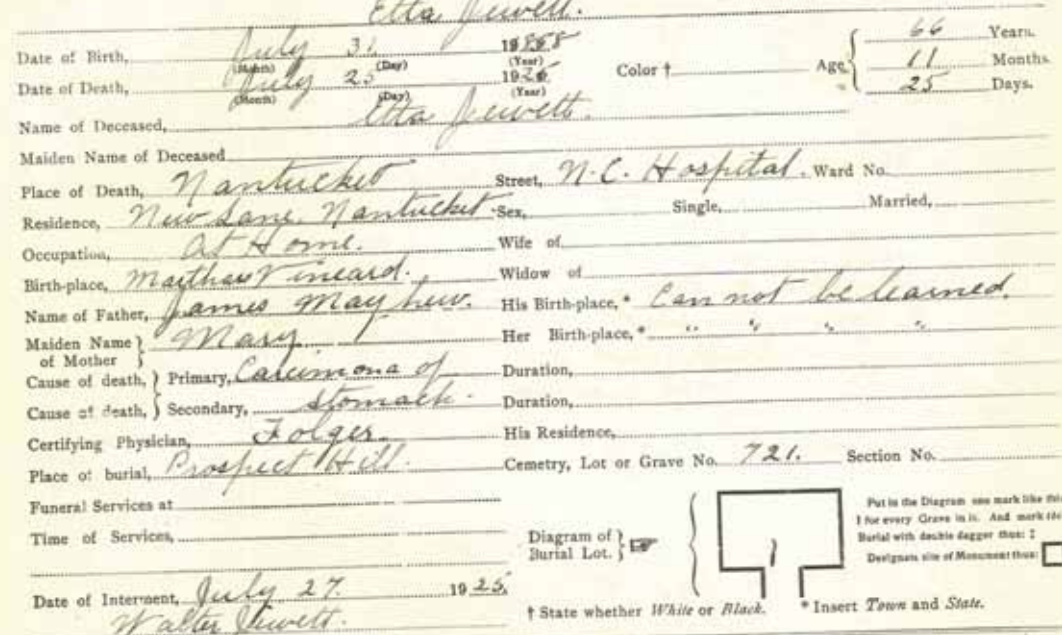 Etta Jewett.
Date of Birth, July 31 1858
(Month) (Day) (Year)
Date of Death, July 25 1925 Color † Age,
(Month) (Day) (Year)
66 Years.
11 Months.
25 Days.
Name of Deceased, Etta Jewett.
Maiden Name of Deceased
Place of Death, Nantucket Street, N.C. Hospital. Ward No.
Residence, New Lane. Nantucket Sex, Single, Married,
Occupation, At Home. Wife of
Birth-place, Marthas Vineard. Widow of
Name of Father, James Mayhew. His Birth-place,* Can not be learned.
Maiden Name of Mother } Mary Her Birth-place,* " " " "
Cause of death, } Primary, Carcimona of Duration,
Cause of death, } Secondary, stomach. Duration,
Certifying Physician, Folger. His Residence,
Place of burial, Prospect Hill. Cemetry, Lot or Grave No. 721. Section No.
Funeral Services at
Time of Services,
Diagram of Burial Lot. }
Put in the Diagram one mark like this
I for every Grave in it. And mark
Burial with double dagger thus: ‡
Designate site of Monument thus:
Date of Interment, July 27. 1925.
† State whether White or Black. * Insert Town and State.
Walter Jewett.